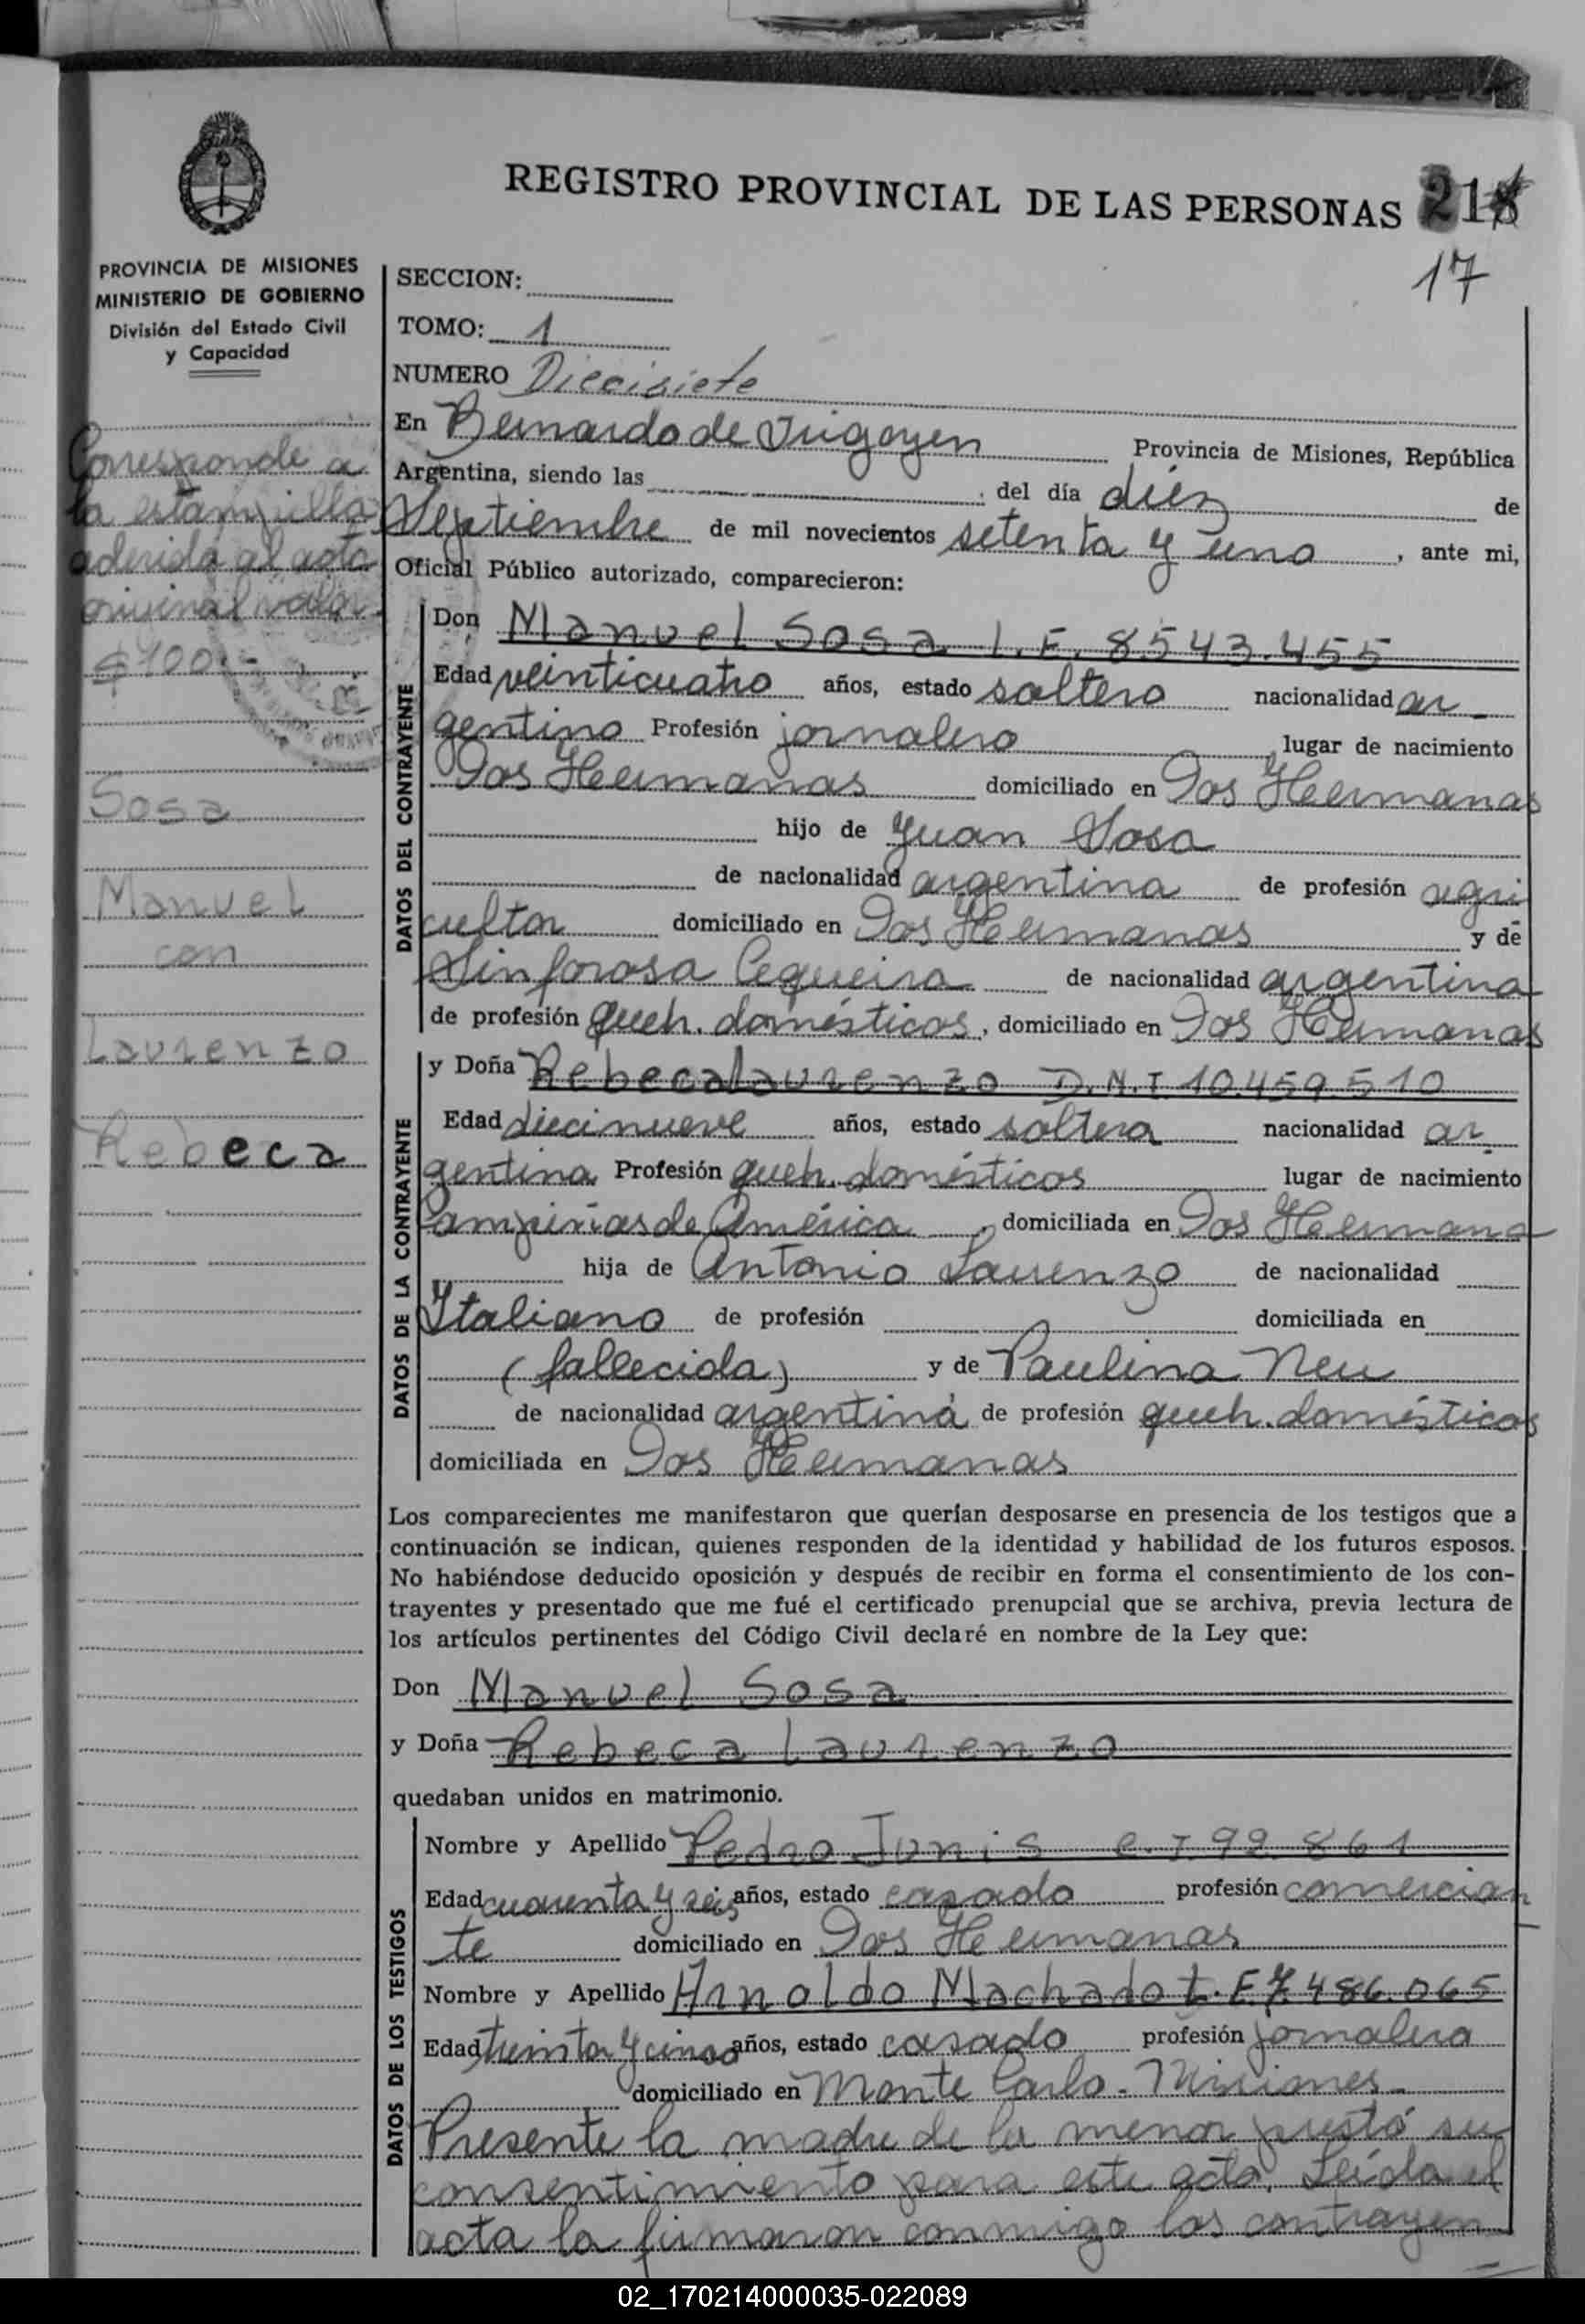 REGISTRO PROVINCIAL DE LAS PERSONAS 218
17
PROVINCIA DE MISIONES
MINISTERIO DE GOBIERNO
División del Estado Civil
y Capacidad
Corresponde a
la estampilla
aderida al acta
original valor
$100.-
Sosa
Manuel
con
Laurenzo
Rebeca
SECCION:
TOMO: 1
NUMERO Diecisiete
En Bernardo de Irigoyen Provincia de Misiones, República
Argentina, siendo las , del día diéz de
Septiembre de mil novecientos setenta y uno, ante mi,
Oficial Público autorizado, comparecieron:
DATOS DEL CONTRAYENTE
Don Manuel Sosa L.E. 8543.455
Edad veinticuatro años, estado soltero nacionalidad ar-
gentino Profesión jornalero, lugar de nacimiento
Dos Hermanas domiciliado en Dos Hermanas
hijo de Juan Sosa
de nacionalidad argentina de profesión agri
cultor domiciliado en Dos Hermanas y de
Sinforosa Cequeira de nacionalidad argentina
de profesión queh. domésticos, domiciliado en Dos Hermanas
DATOS DE LA CONTRAYENTE
y Doña Rebeca Laurenzo D.N.I 10.459.510
Edad diecinueve años, estado soltera nacionalidad ar-
gentina Profesión queh. domésticos lugar de nacimiento
Campiñas de América, domiciliada en Dos Hermana
hija de Antonio Laurenzo de nacionalidad
Italiano de profesión domiciliada en
(fallecida) y de Paulina Neu
de nacionalidad argentina de profesión queh. domésticos
domiciliada en Dos Hermanas
Los comparecientes me manifestaron que querían desposarse en presencia de los testigos que a
continuación se indican, quienes responden de la identidad y habilidad de los futuros esposos.
No habiéndose deducido oposición y después de recibir en forma el consentimiento de los con-
trayentes y presentado que me fué el certificado prenupcial que se archiva, previa lectura de
los artículos pertinentes del Código Civil declaré en nombre de la Ley que:
Don Manuel Sosa
y Doña Rebeca Laurenzo
quedaban unidos en matrimonio.
DATOS DE LOS TESTIGOS
Nombre y Apellido Pedro Junis C.I 99.861
Edad cuarenta y seis años, estado casado profesión comercian
te domiciliado en Dos Hermanas
Nombre y Apellido Arnoldo Machado L.E 7.486.065
Edad treinta y cinco años, estado casado profesión jornalero
domiciliado en Monte Carlo - Misiones -
Presente la madre de la menor prestó su
consentimiento para este acto. Leída el
acta la firmaron conmigo los contrayen
02_170214000035-022089